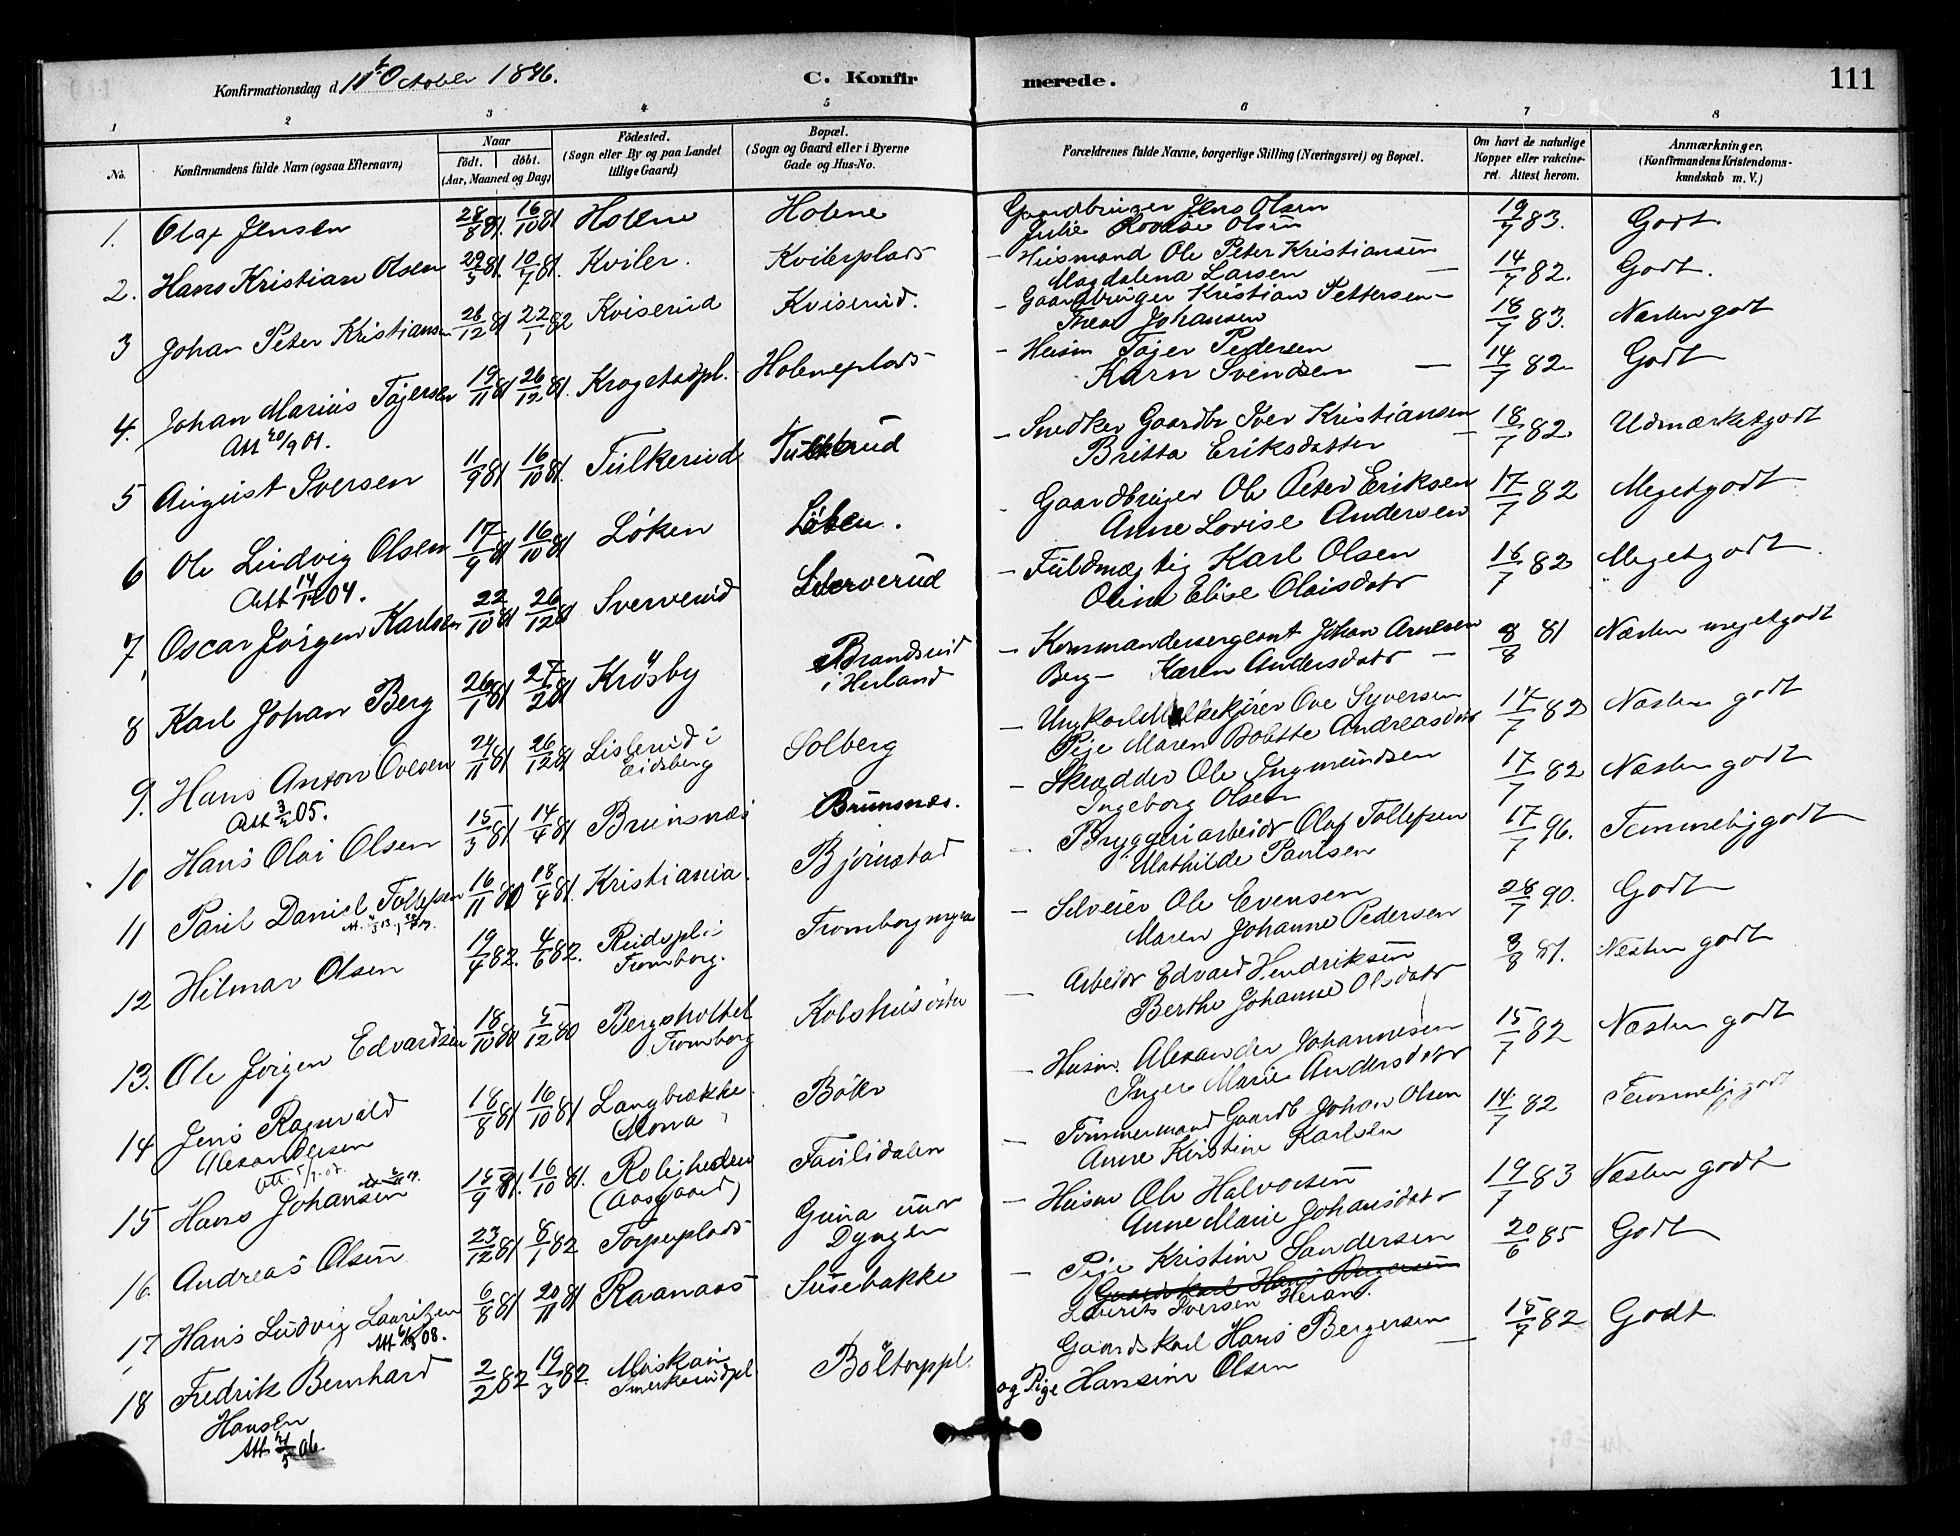 Konfirmationsdag d. 11te October 1896.
C. Konfirmerede.
111
1 2 3 4 5 6 7 8
No. Konfirmandens fulde Navn (ogsaa Efternavn) Naar födt. döbt. (Aar, Maaned og Dag) Födested. (Sogn eller By og paa Landet tillige Gaard) Bopæl. (Sogn og Gaard eller i Byerne Gade og Hus-No. Forældrenes fulde Navne, borgerlige Stilling (Næringsvei) og Bopæl. Om havt de naturlige Kopper eller vakcineret. Attest herom. Anmærkninger. (Konfirmandens Kristendomskundskab m. V.)
1. Olaf Jensen 28/8 81. 16/10 81 Holene Holene Gaardbruger Jens Olsen 19/7 83. Godt
Julie Lovise Olsen
2. Hans Kristian Olsen 29/5 81. 10/7 81. Kviler. Kvilerplads – Husmand Ole Peter Kristiansen 14/7 82. Godt.
Magdalena Larsen
3 Johan Peter Kristiansen 26/12 81 22/1 82 Kviserud Kviserud. – Gaardbruger Kristian Pettersen 18/7 83. Næsten godt
Thea Johansen
4. Johan Marius Tøjersen 19/11 81 26/12 81. Krogstadpl. Holeneplads – Husm Tøjer Pedersen 14/7 82 Godt
Att 20/9 01. Karn Svendsen
5 August Iversen 11/9 81 16/10 81. Tulkerud Tulkerud – Snedker Gaardbr Iver Kristiansen 18/7 82 Udmærketgodt
Britta Eriksdatter
6 Ole Ludvig Olsen 17/9 81 16/10 81 Løken Løken. Gaardbruger Ole Peter Eriksen 17/7 82 Megetgodt
Att 14/12 04. Anne Lovise Andersen
7, Oscar Jørgen Karlsen 22/10 81 26/12 81 Sververud Sververud – Fuldmægtig Karl Olsen 16/7 82 Megetgodt
Oline Elise Olaisdatr
8 Karl Johan Berg 26/1 81 27/2 81 Krøsby Brandsrud i Herland – Kommandersergeant Johan Arnesen 8/8 81 Næsten megetgodt
Berg – Karen Andersdatr –
9. Hans Anton Ovesen 24/11 81 26/12 81 Lislerud i Eidsberg Solberg – Ungkarl Melkekjører Ove Syversen 17/7 82 Næsten godt
Att 3/2 05. Pige Maren Bolette Andreasdatr
10 Hans Olai Olsen 15/3 81 14/4 81 Brunsnæs Brunsnæs. – Skrædder Ole Ingmundsen 17/7 82 Næsten godt
Ingeborg Olsen
11 Paul Daniel Tollefsen 16/11 80 18/4 81. Kristiania. Bjørnstad – Bryggeriarbeidr Olaf Tollefsen 17/7 96. Temmeligodt
Mathilde Paulsen
12 Hilmar Olsen 19/4 82. 4/6 82. Rudspl. i Tromborg. Tromborgmyra – Selveier Ole Evensen 28/7 90. Godt
Maren Johanne Pedersen
13. Ole Jørgen Edvardsen 18/10 80 5/12 80 Bergsholtet Tromborg Kolshus østre – Arbeidr Edvard Hendriksen 3/8 81. Næsten godt
Berthe Johanne Olsdatr
14 Jens Ragnvald 18/8 81 16/10 81 Langbrække Mona Böler – Husm. Alexander Johannesen 15/7 82 Næsten godt
Alexandersen Inger Marie Andersdatr
15 Hans Johansen 15/9 81. 16/10 81. Rolighden (Aasgaard) Faulidalen – Tömmermand Gaardb Johan Olsen 14/7 82 Temmeligodt
Anne Kirstine Karlsen
16. Andreas Olsen 23/12 81 8/1 82 Torperplads – Husm Ole Halvorsen 19/7 83 Næsten godt
Anne Marie Johansdatr
17, Hans Ludvig Lauritzen 6/8 81 20/11 81 Raanaas Susebakke – Pige Kristine Sandersen 20/6 85 Godt
Laurits Iversen Heran.
18 Fredrik Bernhard 2/2 82 19/3 82. Böltorppl. Gaardskarl Hans Bergersen 15/7 82 Godt
Hansen og Pige Hansine Olsen
Att 21/5 06.